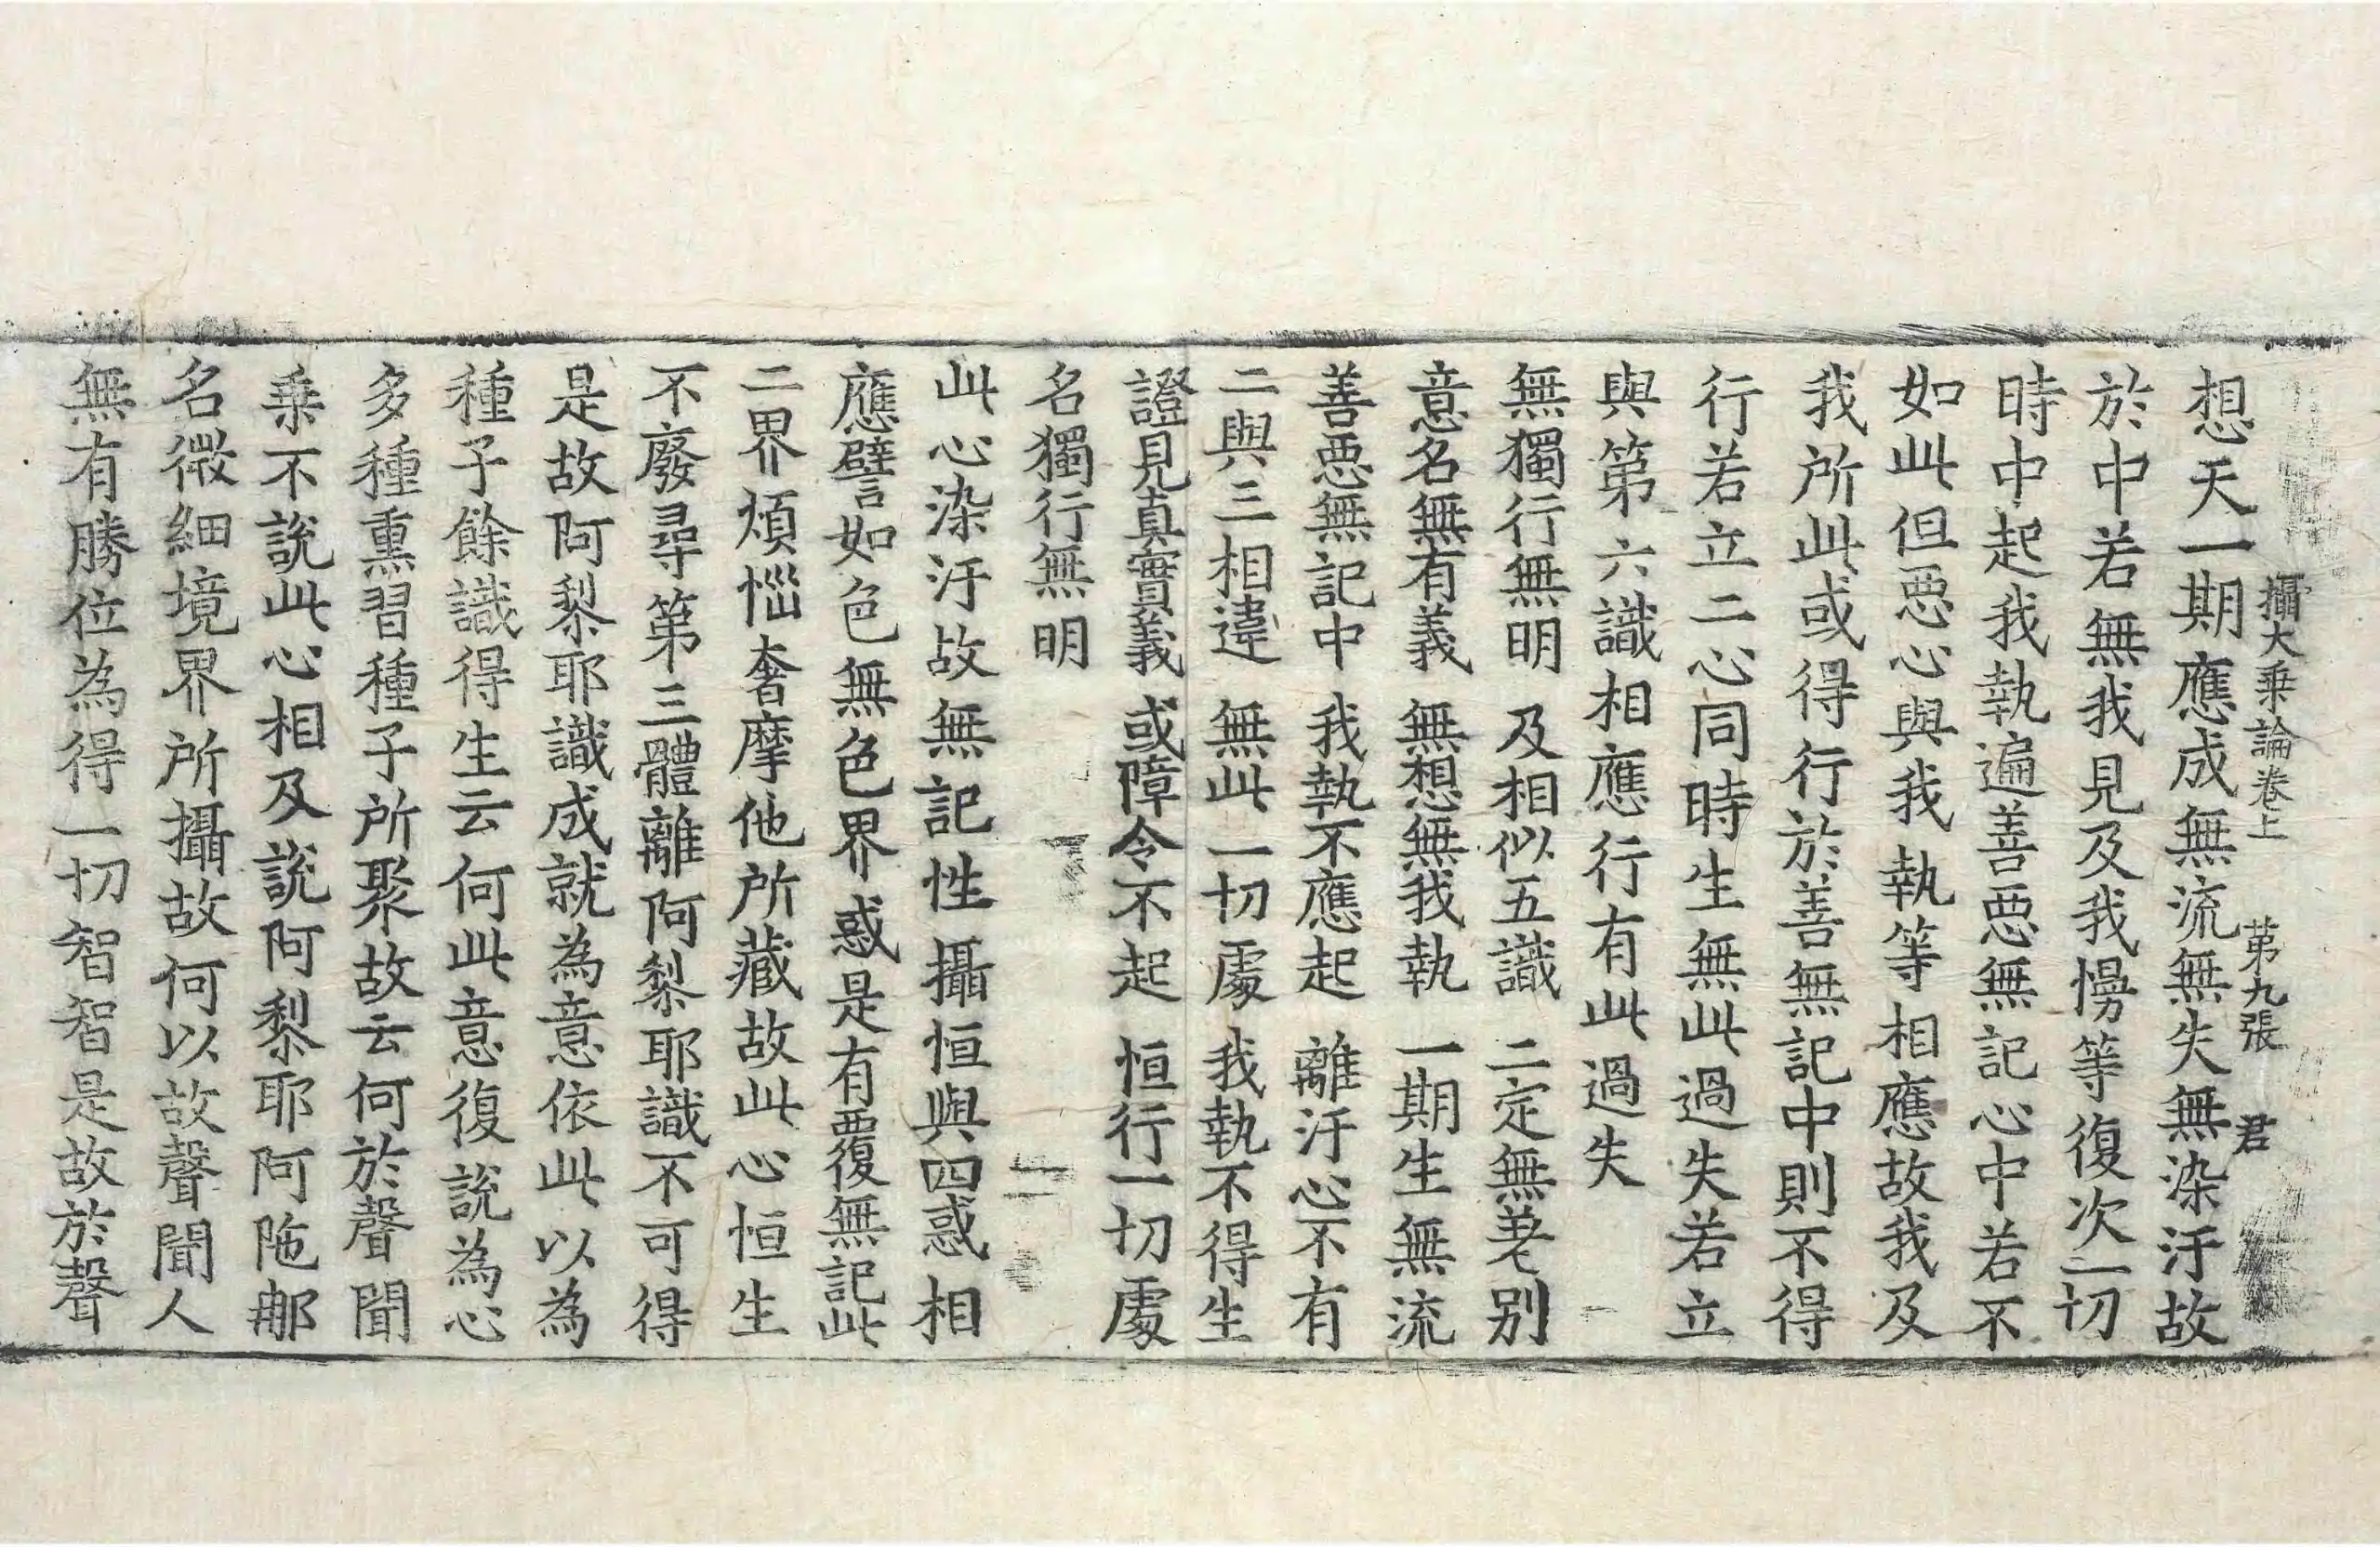 攝大乗論卷上　第九張　君
想天一期應成無流無失無染汙故
於中若無我見及我慢等復次一切
時中起我執遍善惡無記心中若不
如此但惡心與我執等相應故我及
我所此或得行於善無記中則不得
行若立二心同時生無此過失若立
與第六識相應行有此過失
無獨行無明　及相似五識　二定無差别
意名無有義　無想無我執　一期生無流
善惡無記中　我執不應起　離汙心不有
二與三相違　無此一切處　我執不得生
證見真實義　或障令不起　恒行一切處
名獨行無明
此心染汙故無記性攝恒與四惑相
應譬如色無色界惑是有覆無記此
二界煩惱奢摩他所藏故此心恒生
不廢尋第三體離阿黎耶識不可得
是故阿黎耶識成就為意依此以為
種子餘識得生云何此意復說為心
多種熏習種子所聚故云何於聲聞
乗不說此心相及說阿黎耶阿陁那
名微細境界所攝故何以故聲聞人
無有勝位為得一切智智是故於聲